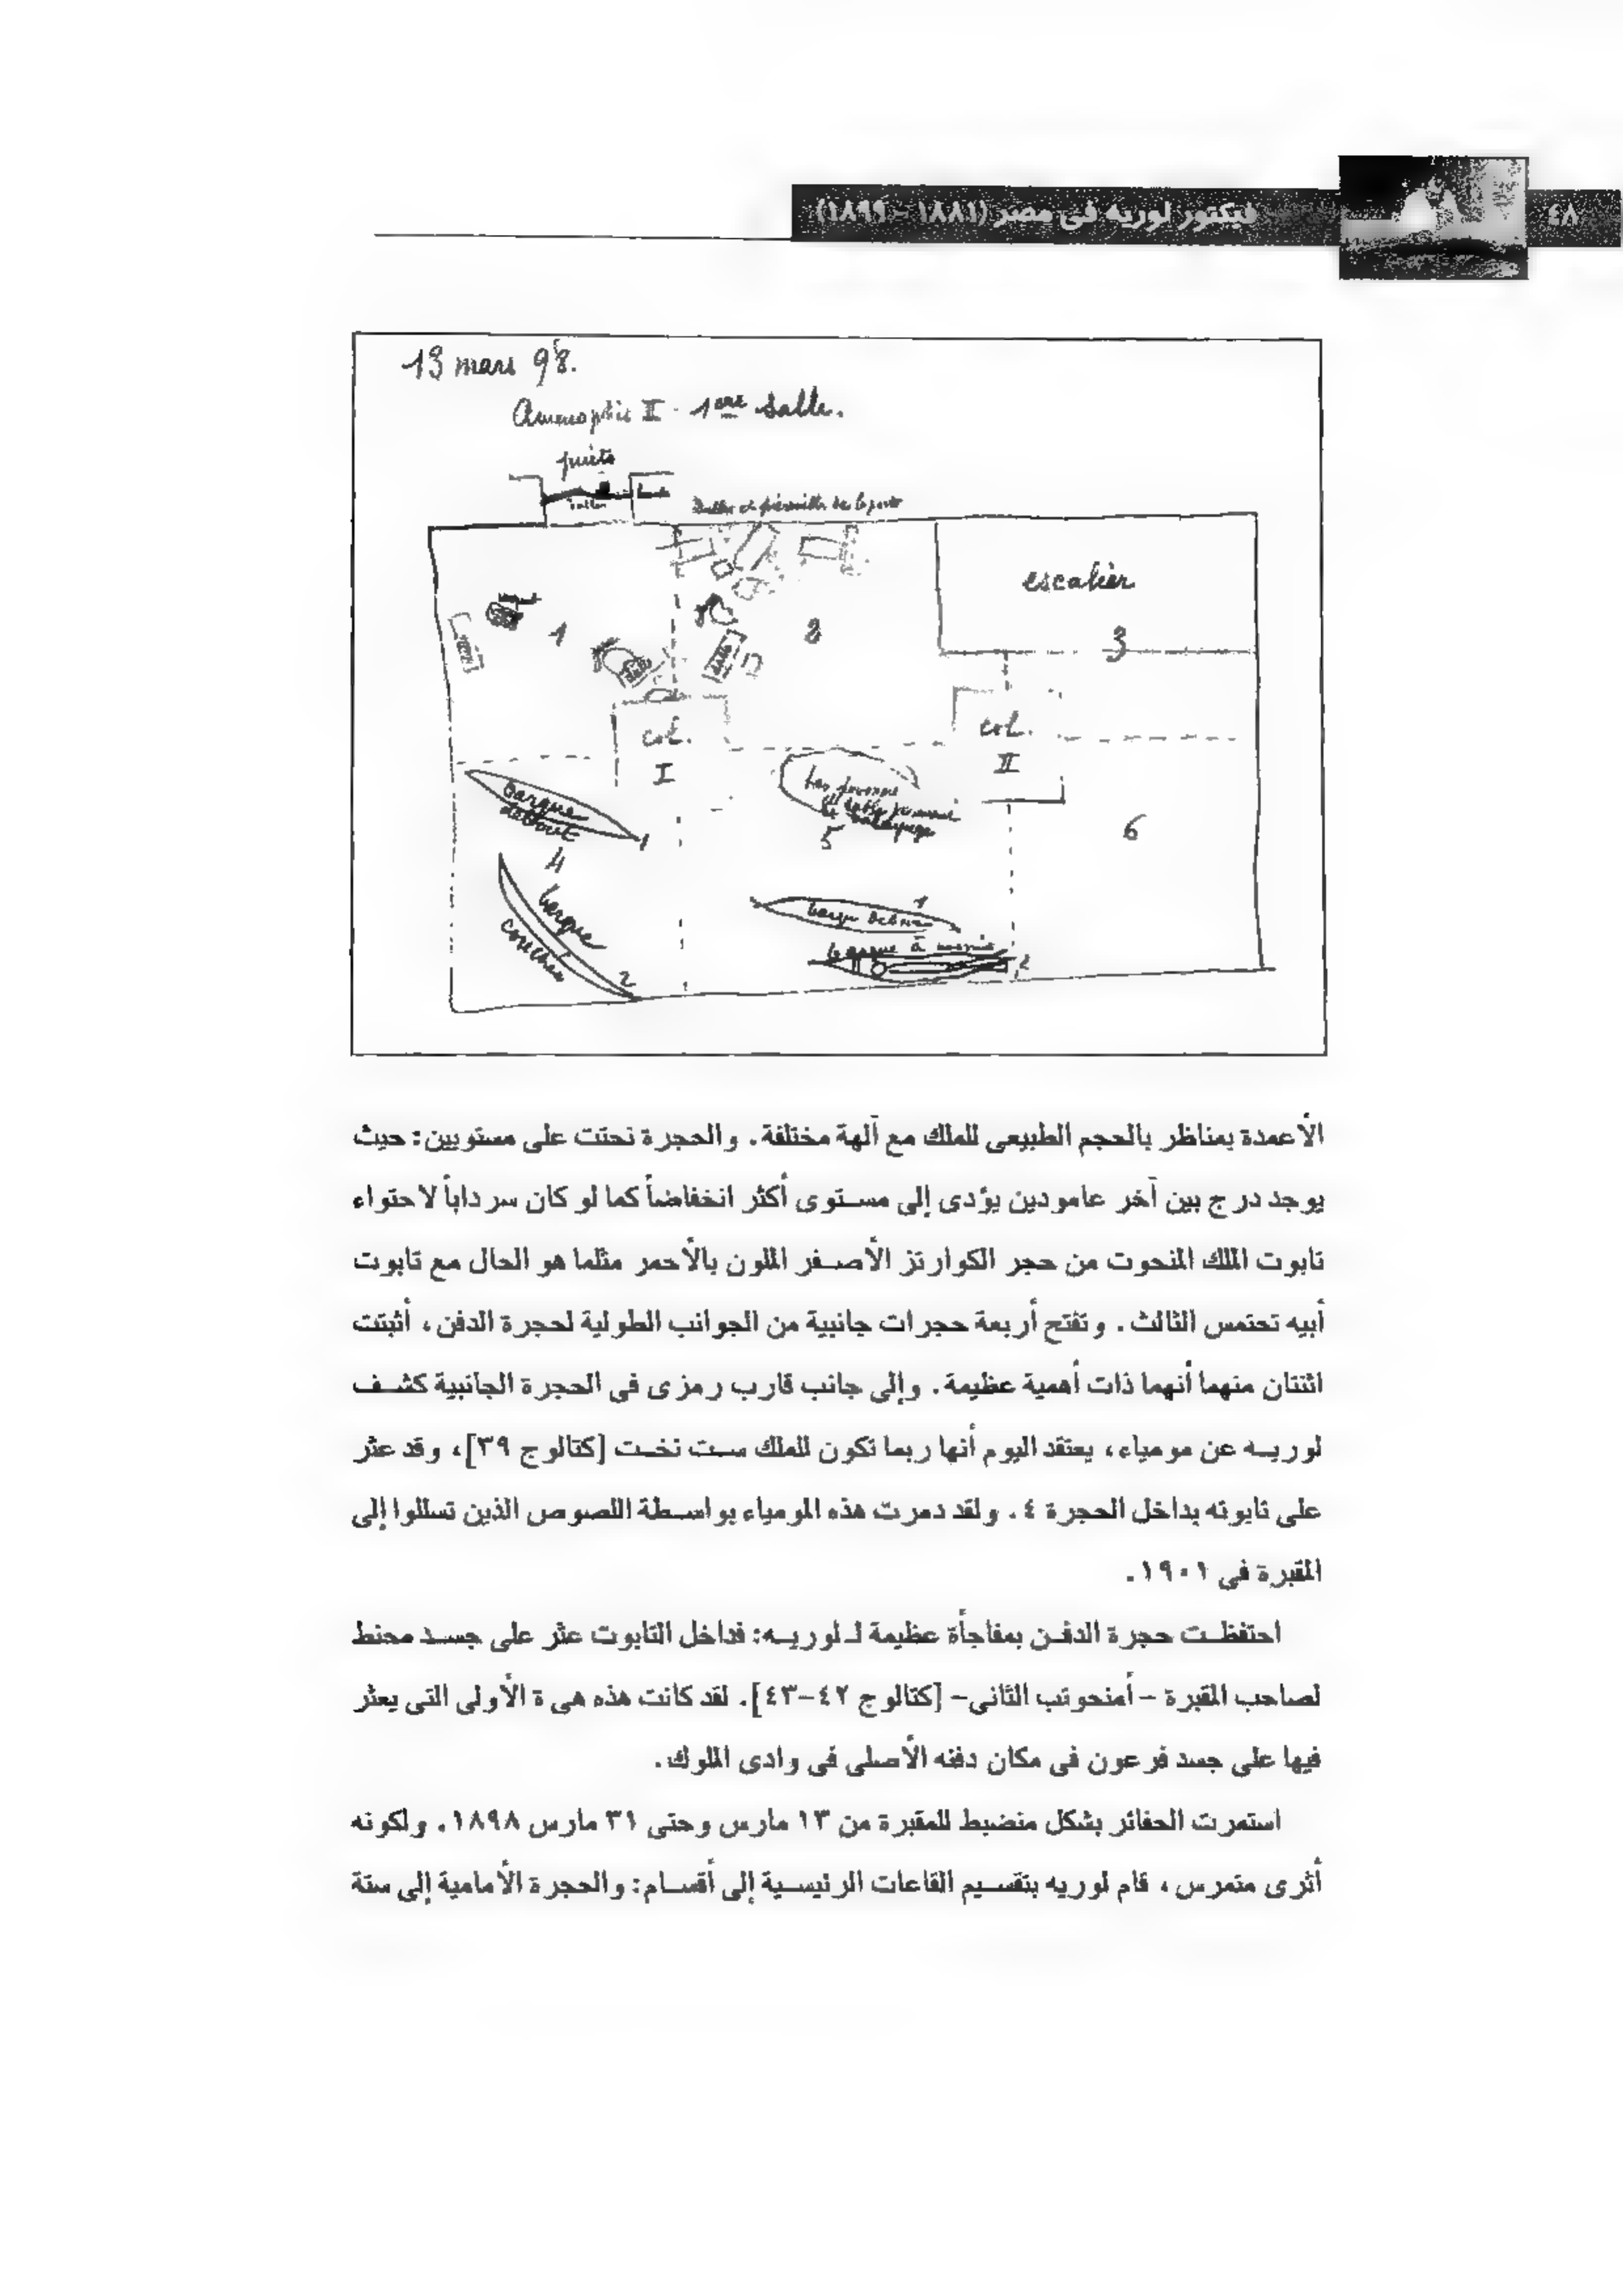 فيكتور لوريه فى مصر (١٨٨١ - ١٨٩٩)
٤٨
13 mars 98.
Amenophis II - 1ere Salle.
puits
escalier
1
3
col.
I
col.
II
barque
debout
1
4
5
6
barque
couchée
2
1
barque à
2
الأعمدة بمناظر بالحجم الطبيعى للملك مع آلهة مختلفة. والحجرة نحتت على مستويين: حيث
يوجد درج بين آخر عامودين يؤدى إلى مستوى أكثر انخفاضاً كما لو كان سرداباً لاحتواء
تابوت الملك المنحوت من حجر الكوارتز الأصفر الملون بالأحمر مثلما هو الحال مع تابوت
أبيه تحتمس الثالث. وتفتح أربعة حجرات جانبية من الجوانب الطولية لحجرة الدفن، أثبتت
اثنتان منهما أنهما ذات أهمية عظيمة. وإلى جانب قارب رمزى فى الحجرة الجانبية كشف
لوريه عن مومياء، يعتقد اليوم أنها ربما تكون للملك ست نخت [كتالوج ٣٩]، وقد عثر
على تابوته بداخل الحجرة ٤. ولقد دمرت هذه المومياء بواسطة اللصوص الذين تسللوا إلى
المقبرة فى ١٩٠١.
احتفظت حجرة الدفن بمفاجأة عظيمة لـ لوريه: فداخل التابوت عثر على جسد محنط
لصاحب المقبرة - أمنحوتب الثانى- [كتالوج ٤٢-٤٣]. لقد كانت هذه هى ة الأولى التى يعثر
فيها على جسد فرعون فى مكان دفنه الأصلى فى وادى الملوك.
استمرت الحفائر بشكل منضبط للمقبرة من ١٣ مارس وحتى ٣١ مارس ١٨٩٨. ولكونه
أثرى متمرس، قام لوريه بتقسيم القاعات الرئيسية إلى أقسام: والحجرة الأمامية إلى ستة